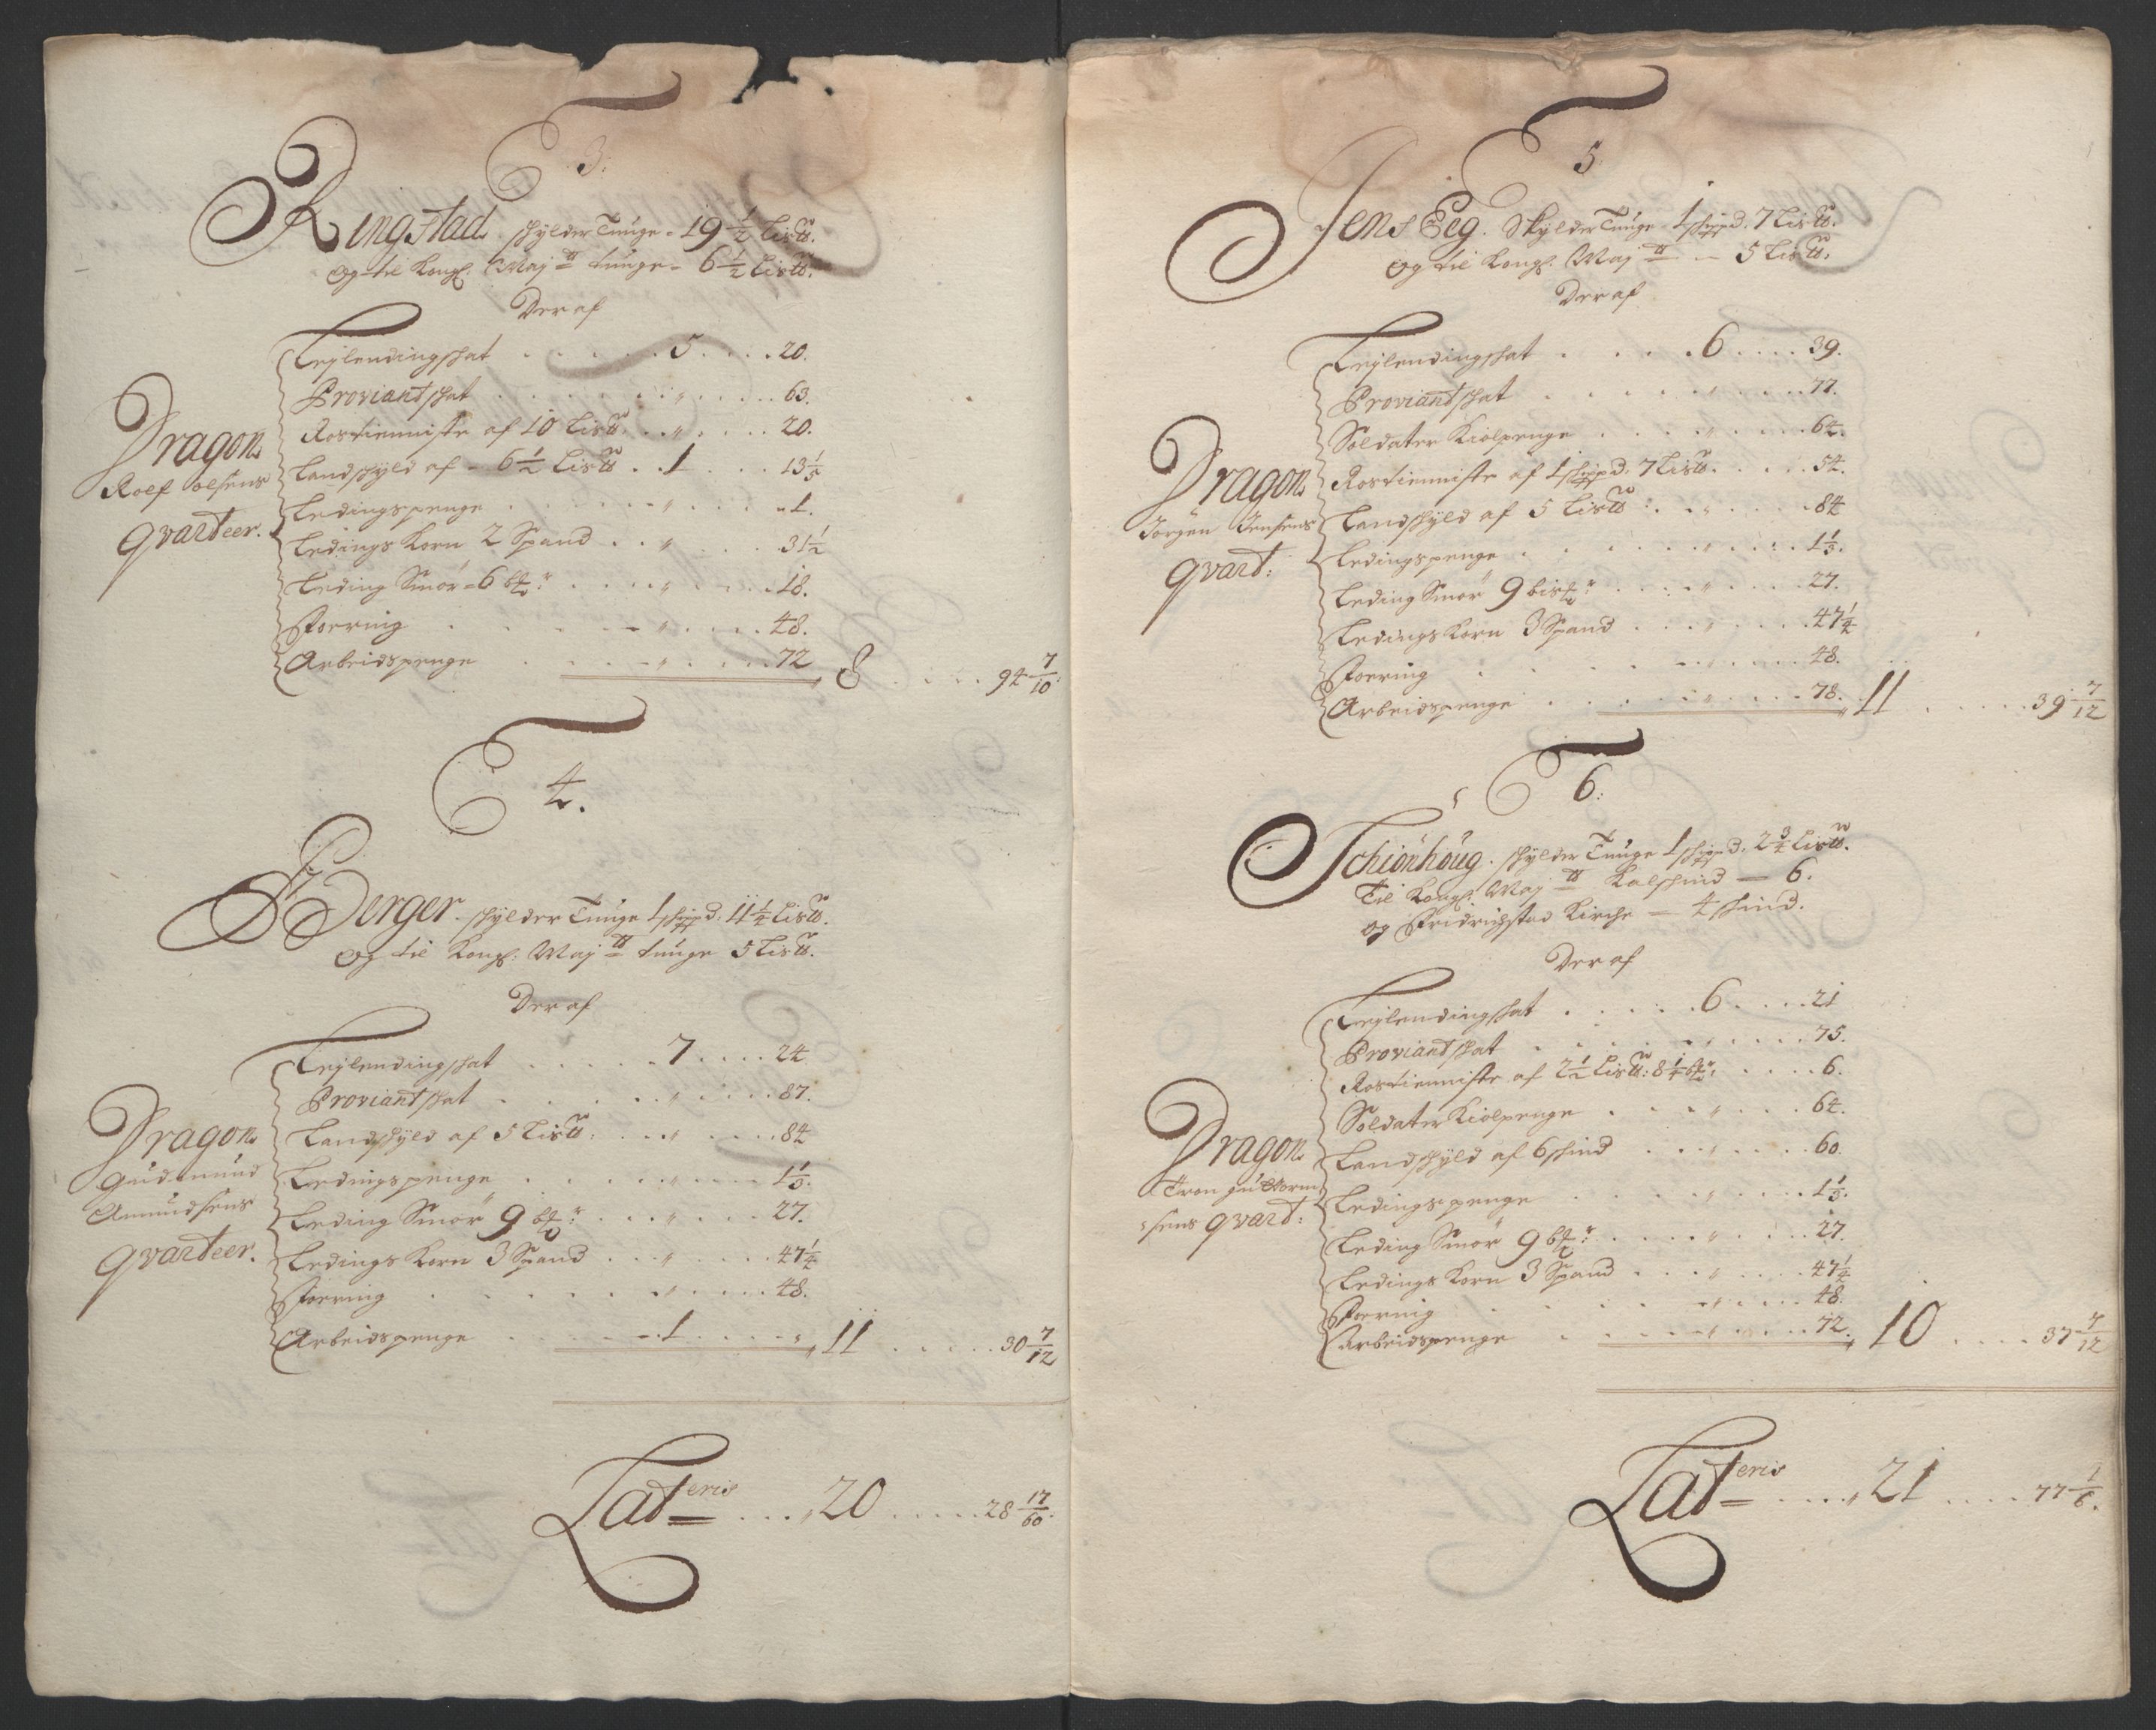 3:
Ringstad. schylder Tunge - 19 1/2 Lis℔.
og til Kongl. Maj:tt tunge - 6 1/2 Lis℔.
Der af
Dragon
Rolf Olsens
Qvarteer.
Leylendingschat . . . . . 5 . . . . 20.
Proviantschat . . . . . . „ . . . . 63.
Rostienniste af 10 Lis℔. . . „ . . . . 20.
Landschyld af - 6 1/2 Lis℔ . . 1 . . . 13 1/5
Ledingspenge . . . . . . „ . . . . 1.
Ledings Korn 2 Spand . . „ . . . 31 1/2
Leding Smör - 6 b℔r: . . . . „ . . . . 18.
Foering . . . . . „ . . . . 48.
Arbeidspenge . . . . „ . . . . 72 8 . . . . 94 7/10:
4.
Berger. schylder Tunge 1 schippd: 11 1/2 Lis℔.
og til Kongl: Maj:tt tunge 5 Lis℔.
Der af
Dragon
Gudmund
Amundsens
Qvarteer.
Leylendingschat . . . . . 7 . . . . 24
Proviantschat . . . . . „ . . . . 87.
Landschyld af 5 Lis℔: . . . „ . . . . 84
Ledingspenge . . . . . „ . . . . 1 1/3.
Leding Smör 9 b℔r: . . . „ . . . . 27.
Ledings Korn 3 Spand . . . „ . . . . 47 1/4
Foering . . . . . . „ . . . . 48.
Arbeidspenge . . . . . 1 . . . . „ 11 . . . . . 30 7/12
Lateris . . . 20 . . . . . 28 17/60.
5
Jens Eeg. Skylder Tunge 1 schippd. 7 Lis℔.
og til Kongl. Maj:tt — 5 Lis℔.
Der af
Dragon
Jørgen Jensens
Qvart:
Leylendingschat . . . . . 6 . . . . 39.
Proviantschat . . . . . . „ . . . . 77.
Soldater Kiolpenge . . . . „ . . . . 64.
Rostienniste af 1 schippd. 7 Lis℔. . . . . 54.
Landschyld af 5 Lis℔: . . „ . . . . 84
Ledingspenge . . . . . „ . . . . 1 1/3.
Leding Smör 9 bis℔r . . . . „ . . . . 27.
Ledings Korn 3 Spand . . . „ . . . . 47 1/4
Foering . . . . . „ . . . . 48.
Arbeidspenge . . . . . „ . . . . 78. 11 . . . . . 39 7/12
6:
Schiönhöug. schylder Tunge 1 schippd. 2 3/4 Lis℔.
Til Kongl. Maj:tt Kalschind — 6.
og Fridrichstad Kirche — 4 schind.
Der af
Dragon
Tron Guttorm
sens Qvart:
Leylendingschat . . . . . 6 . . . . 21
Proviantschat . . . . . . „ . . . . 75.
Rostienniste af 2 1/2 Lis℔: 8 1/4 b℔r. . . . . 6.
Soldater Kiolpenge . . . . „ . . . . 64.
Landschyld af 6 schind . . . „ . . . . 60.
Ledingspenge . . . . . „ . . . . 1 1/3.
Leding Smör 9 b℔r: . . . . „ . . . . 27.
Ledings Korn 3 Spand . . . „ . . . . 47 1/4
Foering . . . . . „ . . . . 48.
Arbeidspenge . . . . . „ . . . . 72. 10 . . . . 37 7/12
Lateris . . . . 21 . . . . 77 1/6.